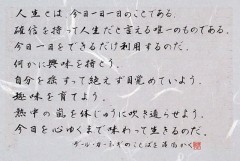 人生とは、今日一日一日のことである。
確信を持って人生だと言える唯一のものである。
今日一日をできるだけ利用するのだ。
何かに興味を持とう。
自分を揺すって絶えず目覚めていよう。
趣味を育てよう。
熱中の嵐を体じゅうに吹き通らせよう。
今日を心ゆくまで味わって生きるのだ。
デール・カーネギーのことばを